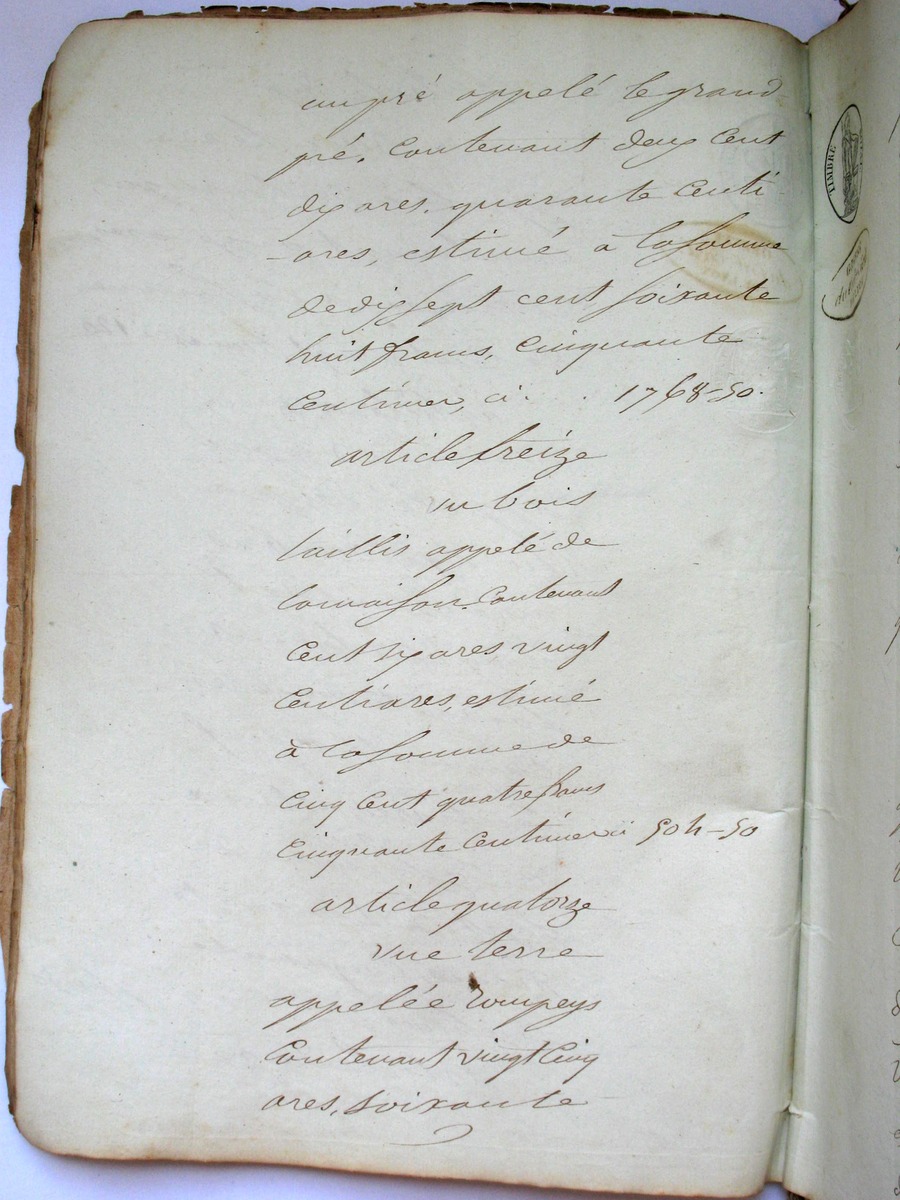 un pré appelé le grand
pré, contenant deux cent
dix ares, quarante centi
-ares, estimé à la somme
de dix sept cent soixante
huit francs, cinquante
centimes, ci. . 1768-50.
article treize
un bois
taillis appelé de
la maison, contenant
cent six ares vingt
centiares, estimé
à la somme de
cinq cent quatre francs
cinquante centimes ci 504-50
article quatorze
une terre
appelée rompeys
contenant vingt cinq
ares, soixante
TIMBRE